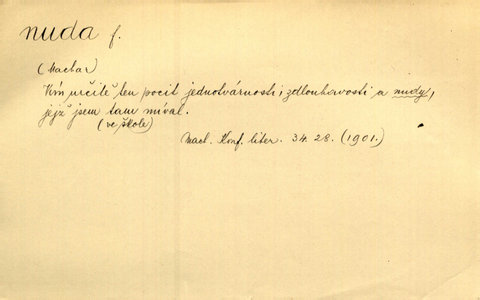 nuda f.
(Machar)
určitě ten pocit jednotvárnosti, zdlouhavosti a nudy,
jejž jsem tam míval.
(ve škole)
Mach. Konf. liter. 34. 28. (1901.)